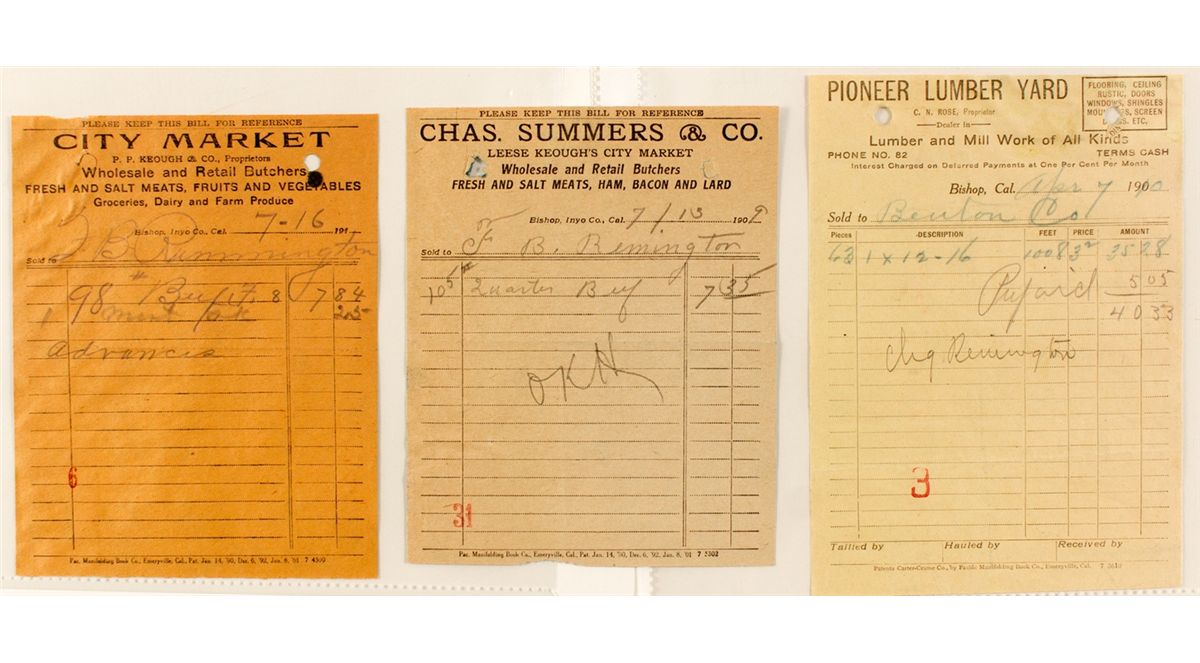 PLEASE KEEP THIS BILL FOR REFERENCE
CITY MARKET
P. P. KEOUGH & CO., Proprietors
Wholesale and Retail Butchers
FRESH AND SALT MEATS, FRUITS AND VEGETABLES
Groceries, Dairy and Farm Produce
Bishop, Inyo Co., Cal. 7-16 191
Sold to B. Rummington
98 # Beef 8 7 84
1 25
Advances
6
Pac. Manifolding Book Co., Emeryville, Cal., Pat. Jan. 14, '90, Dec. 6, '92, Jan. 8, '01 7 4500
PLEASE KEEP THIS BILL FOR REFERENCE
CHAS. SUMMERS & CO.
LEESE KEOUGH'S CITY MARKET
Wholesale and Retail Butchers
FRESH AND SALT MEATS, HAM, BACON AND LARD
Bishop, Inyo Co., Cal. 7/13 1909
Sold to F B. Remington
105 Quarter Beef 7 35
OKH
31
Pac. Manifolding Book Co., Emeryville, Cal., Pat. Jan. 14, '90, Dec. 6, '92, Jan. 8, '01 7 5302
PIONEER LUMBER YARD
C. N. ROSE, Proprietor
Dealer in
FLOORING, CEILING
RUSTIC, DOORS
WINDOWS, SHINGLES
MOULDINGS, SCREEN
DOORS. ETC.
Lumber and Mill Work of All Kinds
PHONE NO. 82 TERMS CASH
Interest Charged on Deferred Payments at One Per Cent Per Month
Bishop, Cal. Apr 7 1900
Sold to Benton Co
Pieces DESCRIPTION FEET PRICE AMOUNT
63 1 x 12-16 1008 3 2 35 28
Prepaid 5 05
40 33
Chg Remington
3
Tallied by Hauled by Received by
Patents Carter-Crume Co., by Pacific Manifolding Book Co., Emeryville, Cal. 7 3610